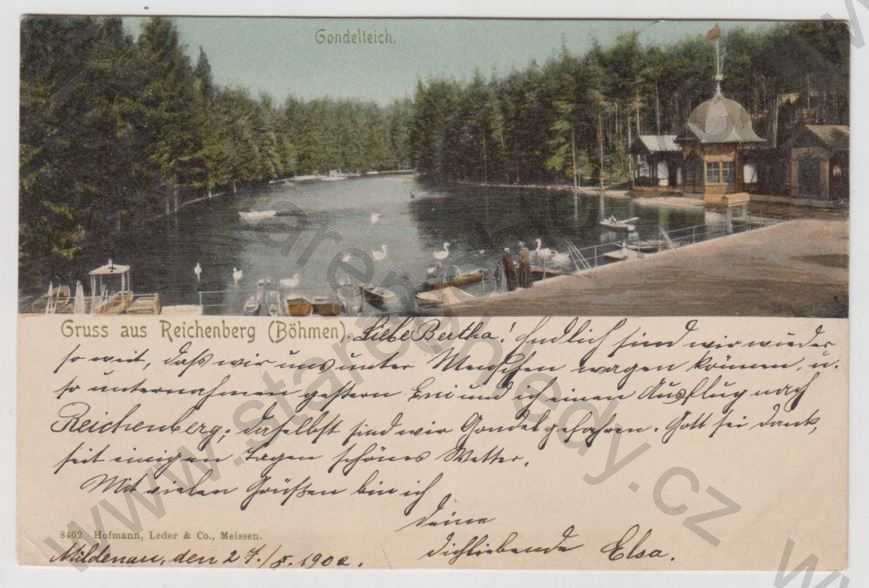 Gondelteich.
Gruss aus Reichenberg (Böhmen).
Liebe Bertha! Endlich sind wir wieder
so weit, daß wir uns unter Menschen wagen können, u.
so unternahmen gestern und ich einen Ausflug nach
Reichenberg; daselbst sind wir Gondel gefahren. Gott sei Dank,
seit einigen Tagen schönes Wetter.
Mit vielen Grüßen bin ich
deine
dichliebende Elsa.
8402 Hofmann, Leder & Co., Meissen.
Mildenau, den 27./8. 1900.
www.starepohledy.cz